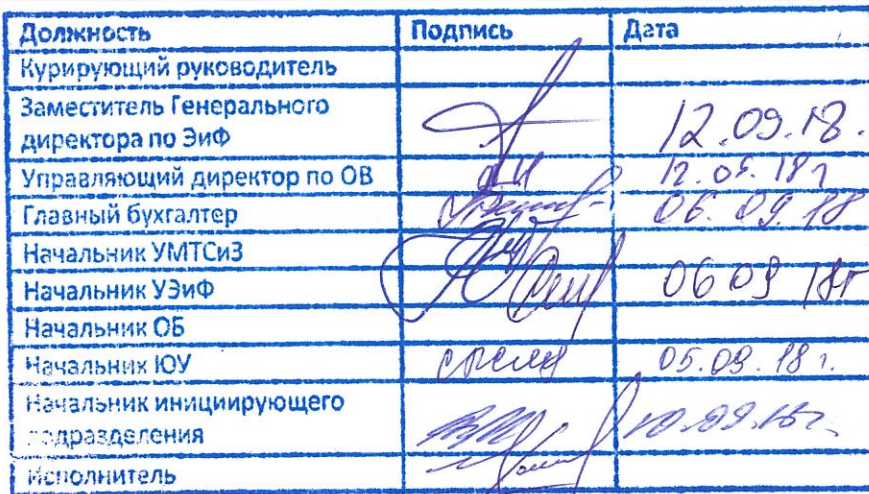 Должность Подпись Дата
Курирующий руководитель
Заместитель Генерального
директора по ЭиФ 12.09.18.
Управляющий директор по ОВ 12.09.18г
Главный бухгалтер 06.09.18
Начальник УМТСиЗ
Начальник УЭиФ 06 09 18г
Начальник ОБ
Начальник ЮУ 05.09.18г.
Начальник инициирующего
подразделения 10.09.18г.
Исполнитель